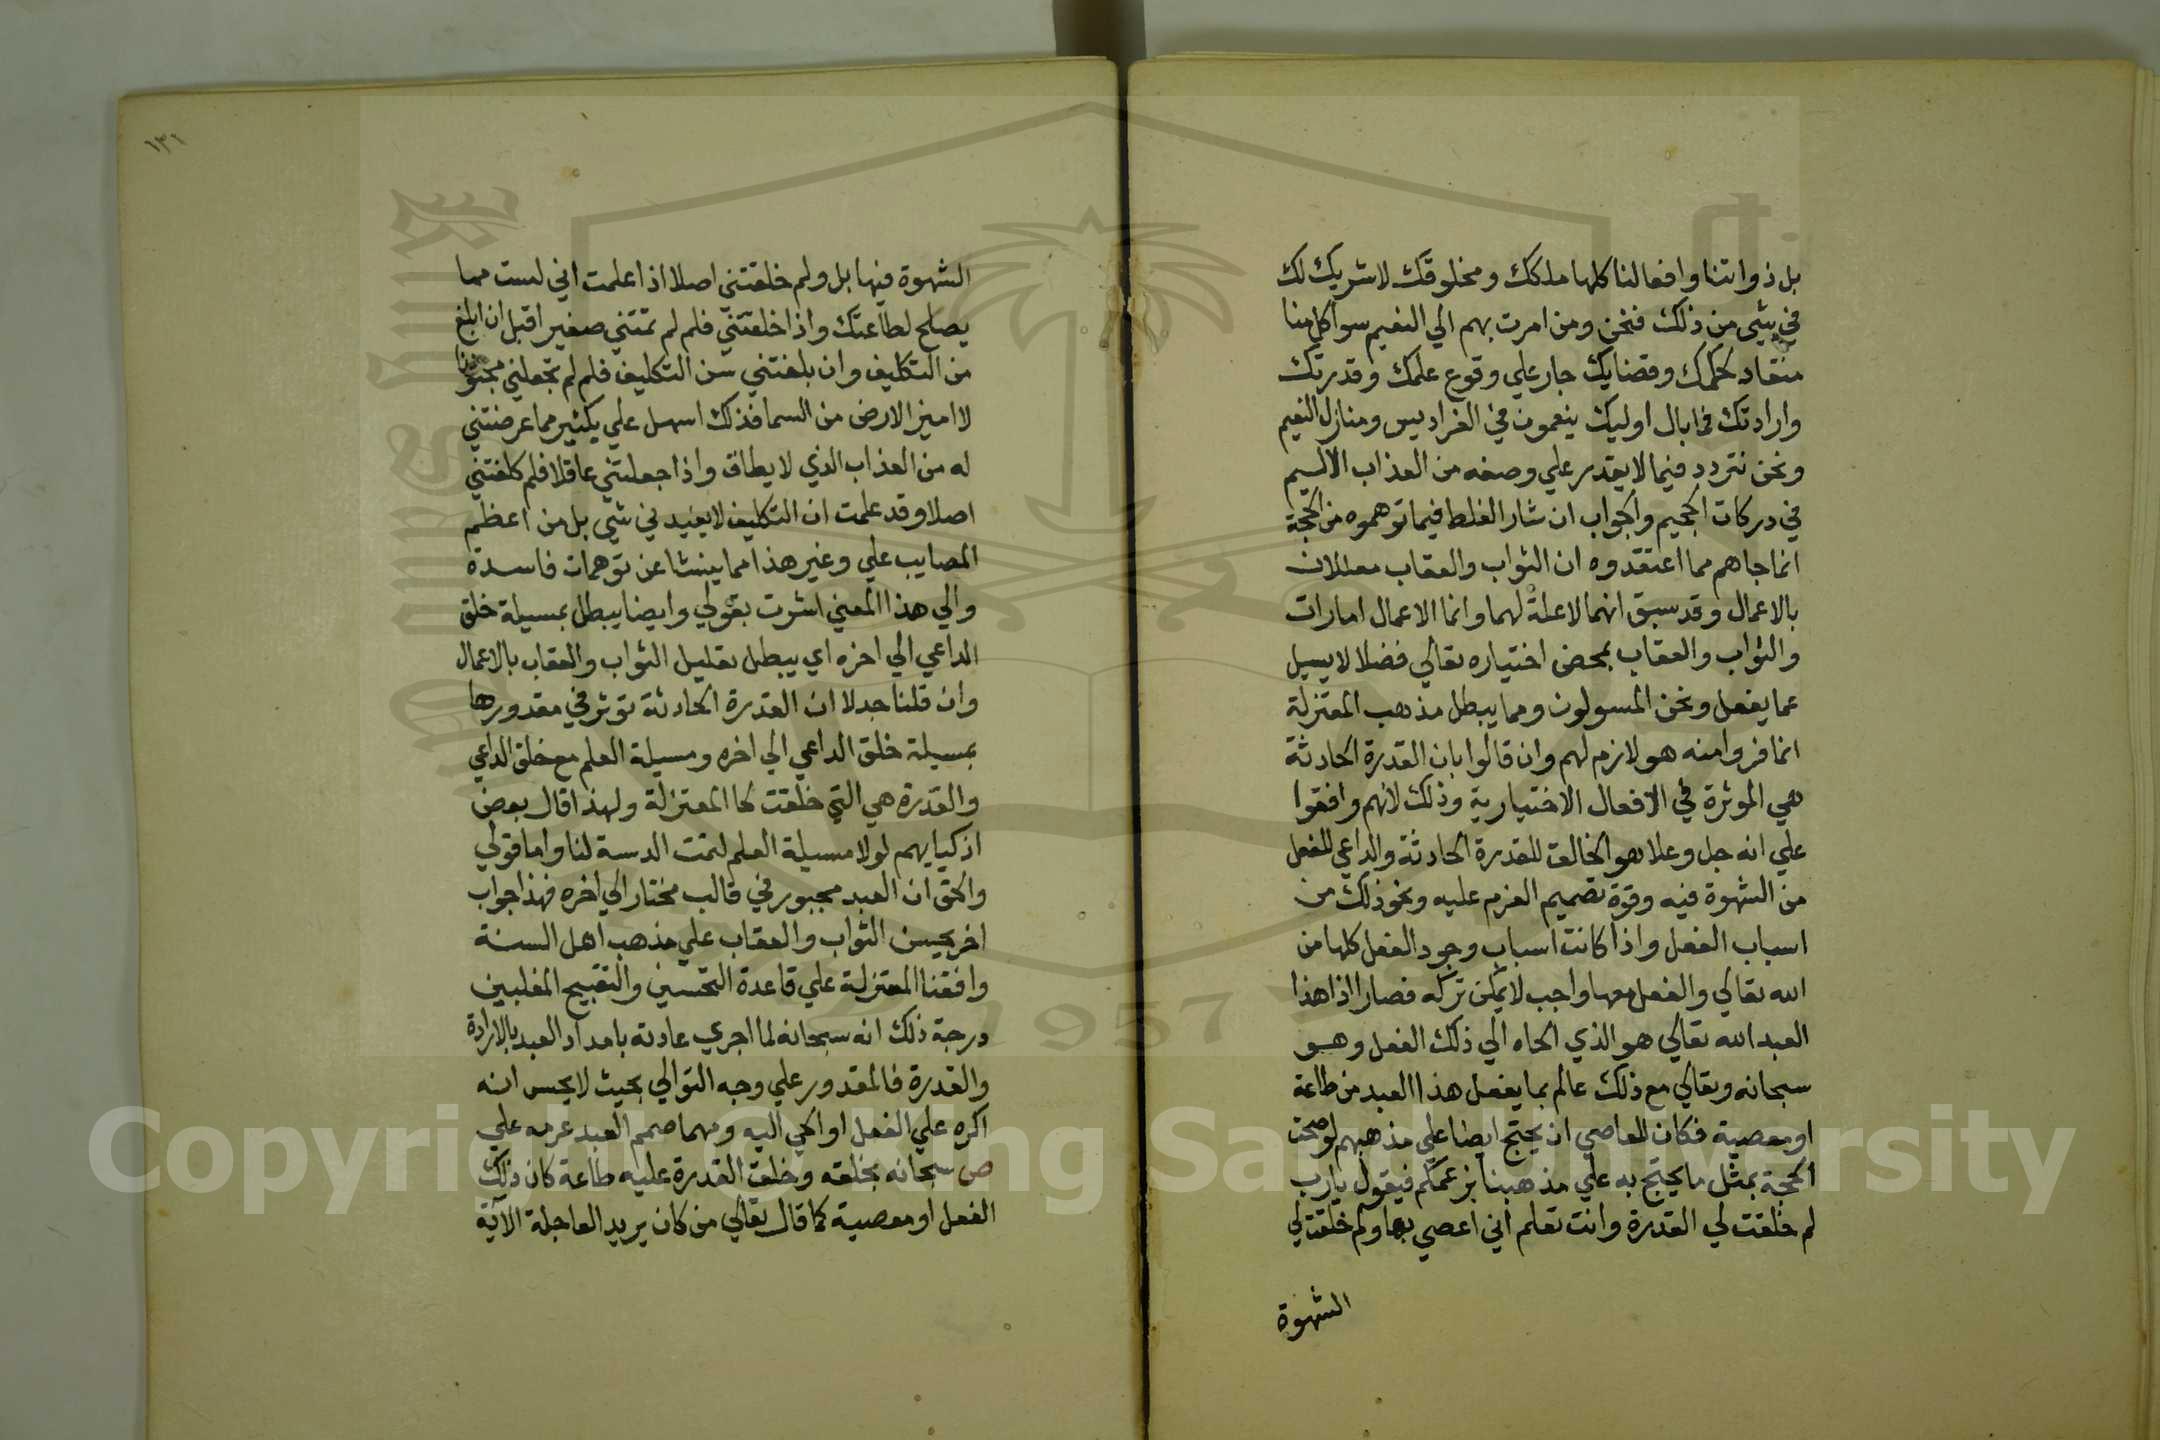 بل ذواتنا وافعالنا كلها ملكك ومخلوقك لا شريك لك
في شي من ذلك فنحن ومن امرت بهم الي النعيم سوا كل منا
منقاد لحكمك وقضايك جار علي وقوع علمك وقدرتك
وارادتك فما بال اوليك ينعمون في الفراديس ومنازل النعيم
ونحن نتردد فيما لا يقدر علي وصفه من العذاب الاليم
في دركات الجحيم والجواب ان مثار الغلط فيما توهموه من الحجة
انما جاهم مما اعتقدوه ان الثواب والعقاب معللان
بالاعمال وقد سبق انهما لا علة لهما وانما الاعمال امارات
والثواب والعقاب بمحض اختياره تعالي فضلا لا يسيل
عما يفعل ونحن المسولون ومما يبطل مذهب المعتزلة
انما فروا منه هو لازم لهم وان قالوا بان القدرة الحادثة
هي الموثرة في الافعال الاختيارية وذلك لانهم وافقوا
علي انه جل وعلا هو الخالق للقدرة الحادثة والداعي للفعل
من الشهوة فيه وقوة تصميم العزم عليه ونحو ذلك من
اسباب الفعل واذا كانت اسباب وجود الفعل كلها من
الله تعالي والفعل معها واجب لا يمكن تركه فصار اذا هذا
العبد الله تعالي هو الذي الجاه الي ذلك الفعل وهو
سبحانه وتعالي مع ذلك عالم بما يفعل هذا العبد من طاعة
او معصية فكان للعاصي ان يحتج ايضا علي مذهبهم لو صحت
الحجة بمثل ما يحتج به علي مذهبنا بزعمكم فيقول يارب
لم خلقت لي القدرة وانت تعلم اني اعصي بها ولم خلقت لي
الشهوة
١٣١
الشهوة فيها بل ولم خلقتني اصلا اذا علمت اني لست مما
يصلح لطاعتك واذا خلقتني فلم لم تمتني صغيرا قبل ان ابلغ
من التكليف وان بلغتني سن التكليف فلم لم تجعلني مجنونا
لا اميز الارض من السما فذلك اسهل علي بكثير مما عرضتني
له من العذاب الذي لا يطاق واذا جعلتني عاقلا فلم كلفتني
اصلا وقد علمت ان التكليف لا يفيد في شي بل من اعظم
المصايب علي وغير هذا مما ينشا عن توهمات فاسدة
والي هذا المعني اشرت بقولي وايضا يبطل بمسيلة خلق
الداعي الي اخره اي يبطل تعليل الثواب والعقاب بالاعمال
وان قلنا جدلا ان القدرة الحادثة توثر في مقدورها
بمسيلة خلق الداعي الي اخره ومسيلة العلم مع خلق الداعي
والقدرة هي التي خلقت لحا المعتزلة ولهذا قال بعض
اذكيايهم لولا مسيلة العلم لتمت الدسة لنا واما قولي
والحق ان العبد مجبور في قالب مختار الي اخره فهذا جواب
اخر يحسن الثواب والعقاب علي مذهب اهل السنة
وافقنا المعتزلة علي قاعدة التحسين والتقبيح المغلبين
درجة ذلك انه سبحانه لما اجري عادته بامداد العبد بالارادة
والقدرة فالمقدور علي وجه التوالي بحيث لا يحس انه
اكره علي الفعل او الجي اليه ومهما صمم العبد عزمه علي
ص سبحانه بخلقه وخلق القدرة عليه طاعة كان ذلك
الفعل او معصية كما قال تعالي من كان يريد العاجلة الاية
1957
Copyright © King Saud University